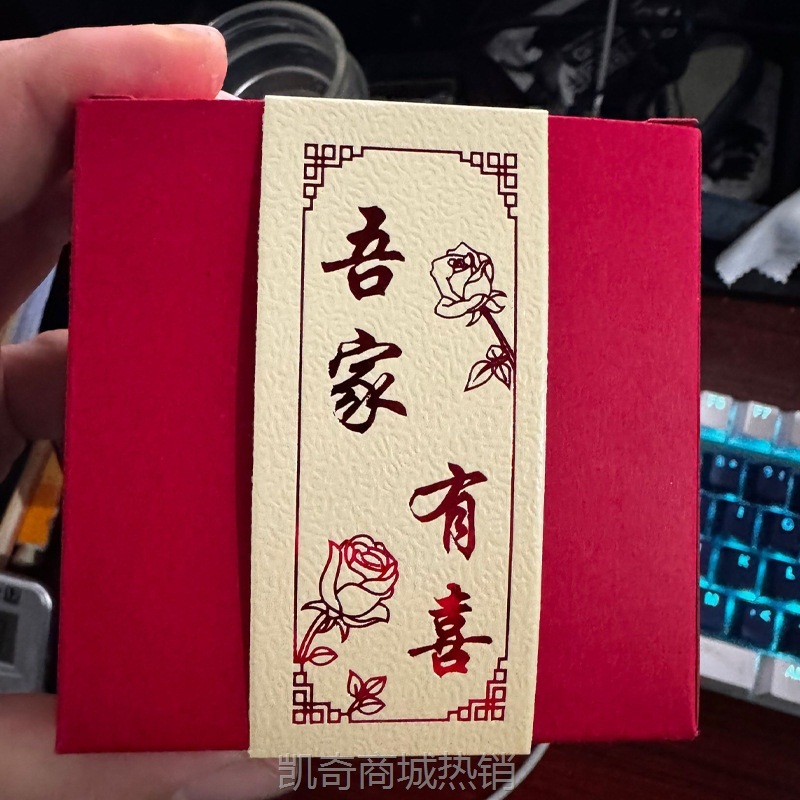 吾家
有喜
凯奇商城热销